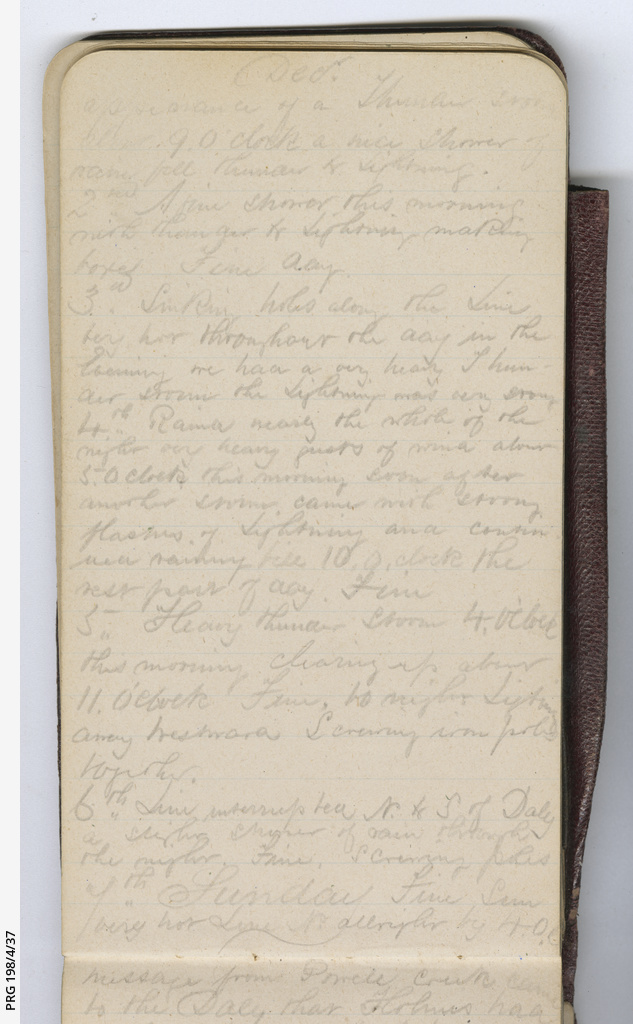 Decr.
appearance of a Thunder storm
after. 9.O'clock a nice shower of
rain fell thunder & Lightning.
2nd A fine shower this morning
with thunder & Lightning making
boxes Fine day
3rd. Sinking holes along the Line
very hot throughout the day in the
Evening we had a very heavy Thun-
der storm the Lightning was very strong
4th" Raind nearly the whole of the
night very heavy gusts of wind about
5.Oclock this morning soon after
another storm came with strong
flashes of Lightning and contin
ued raining till 10,o,clock the
rest part of day. Fine
5" Heavy thunder storm 4.O'Clock
this morning clearing up about
11.O'clock Fine. to night Lightning
away Westward Screwing iron poles
together.
6th" Line interrupted N. & S of Daly
a slight shower of rain through
the night. Fine. Screwing poles
7th" Sunday Fine Sun
very hot Line No allright by 4.O,C
message from Powell creek came
to the Daly that Holmes had
PRG 198/4/37